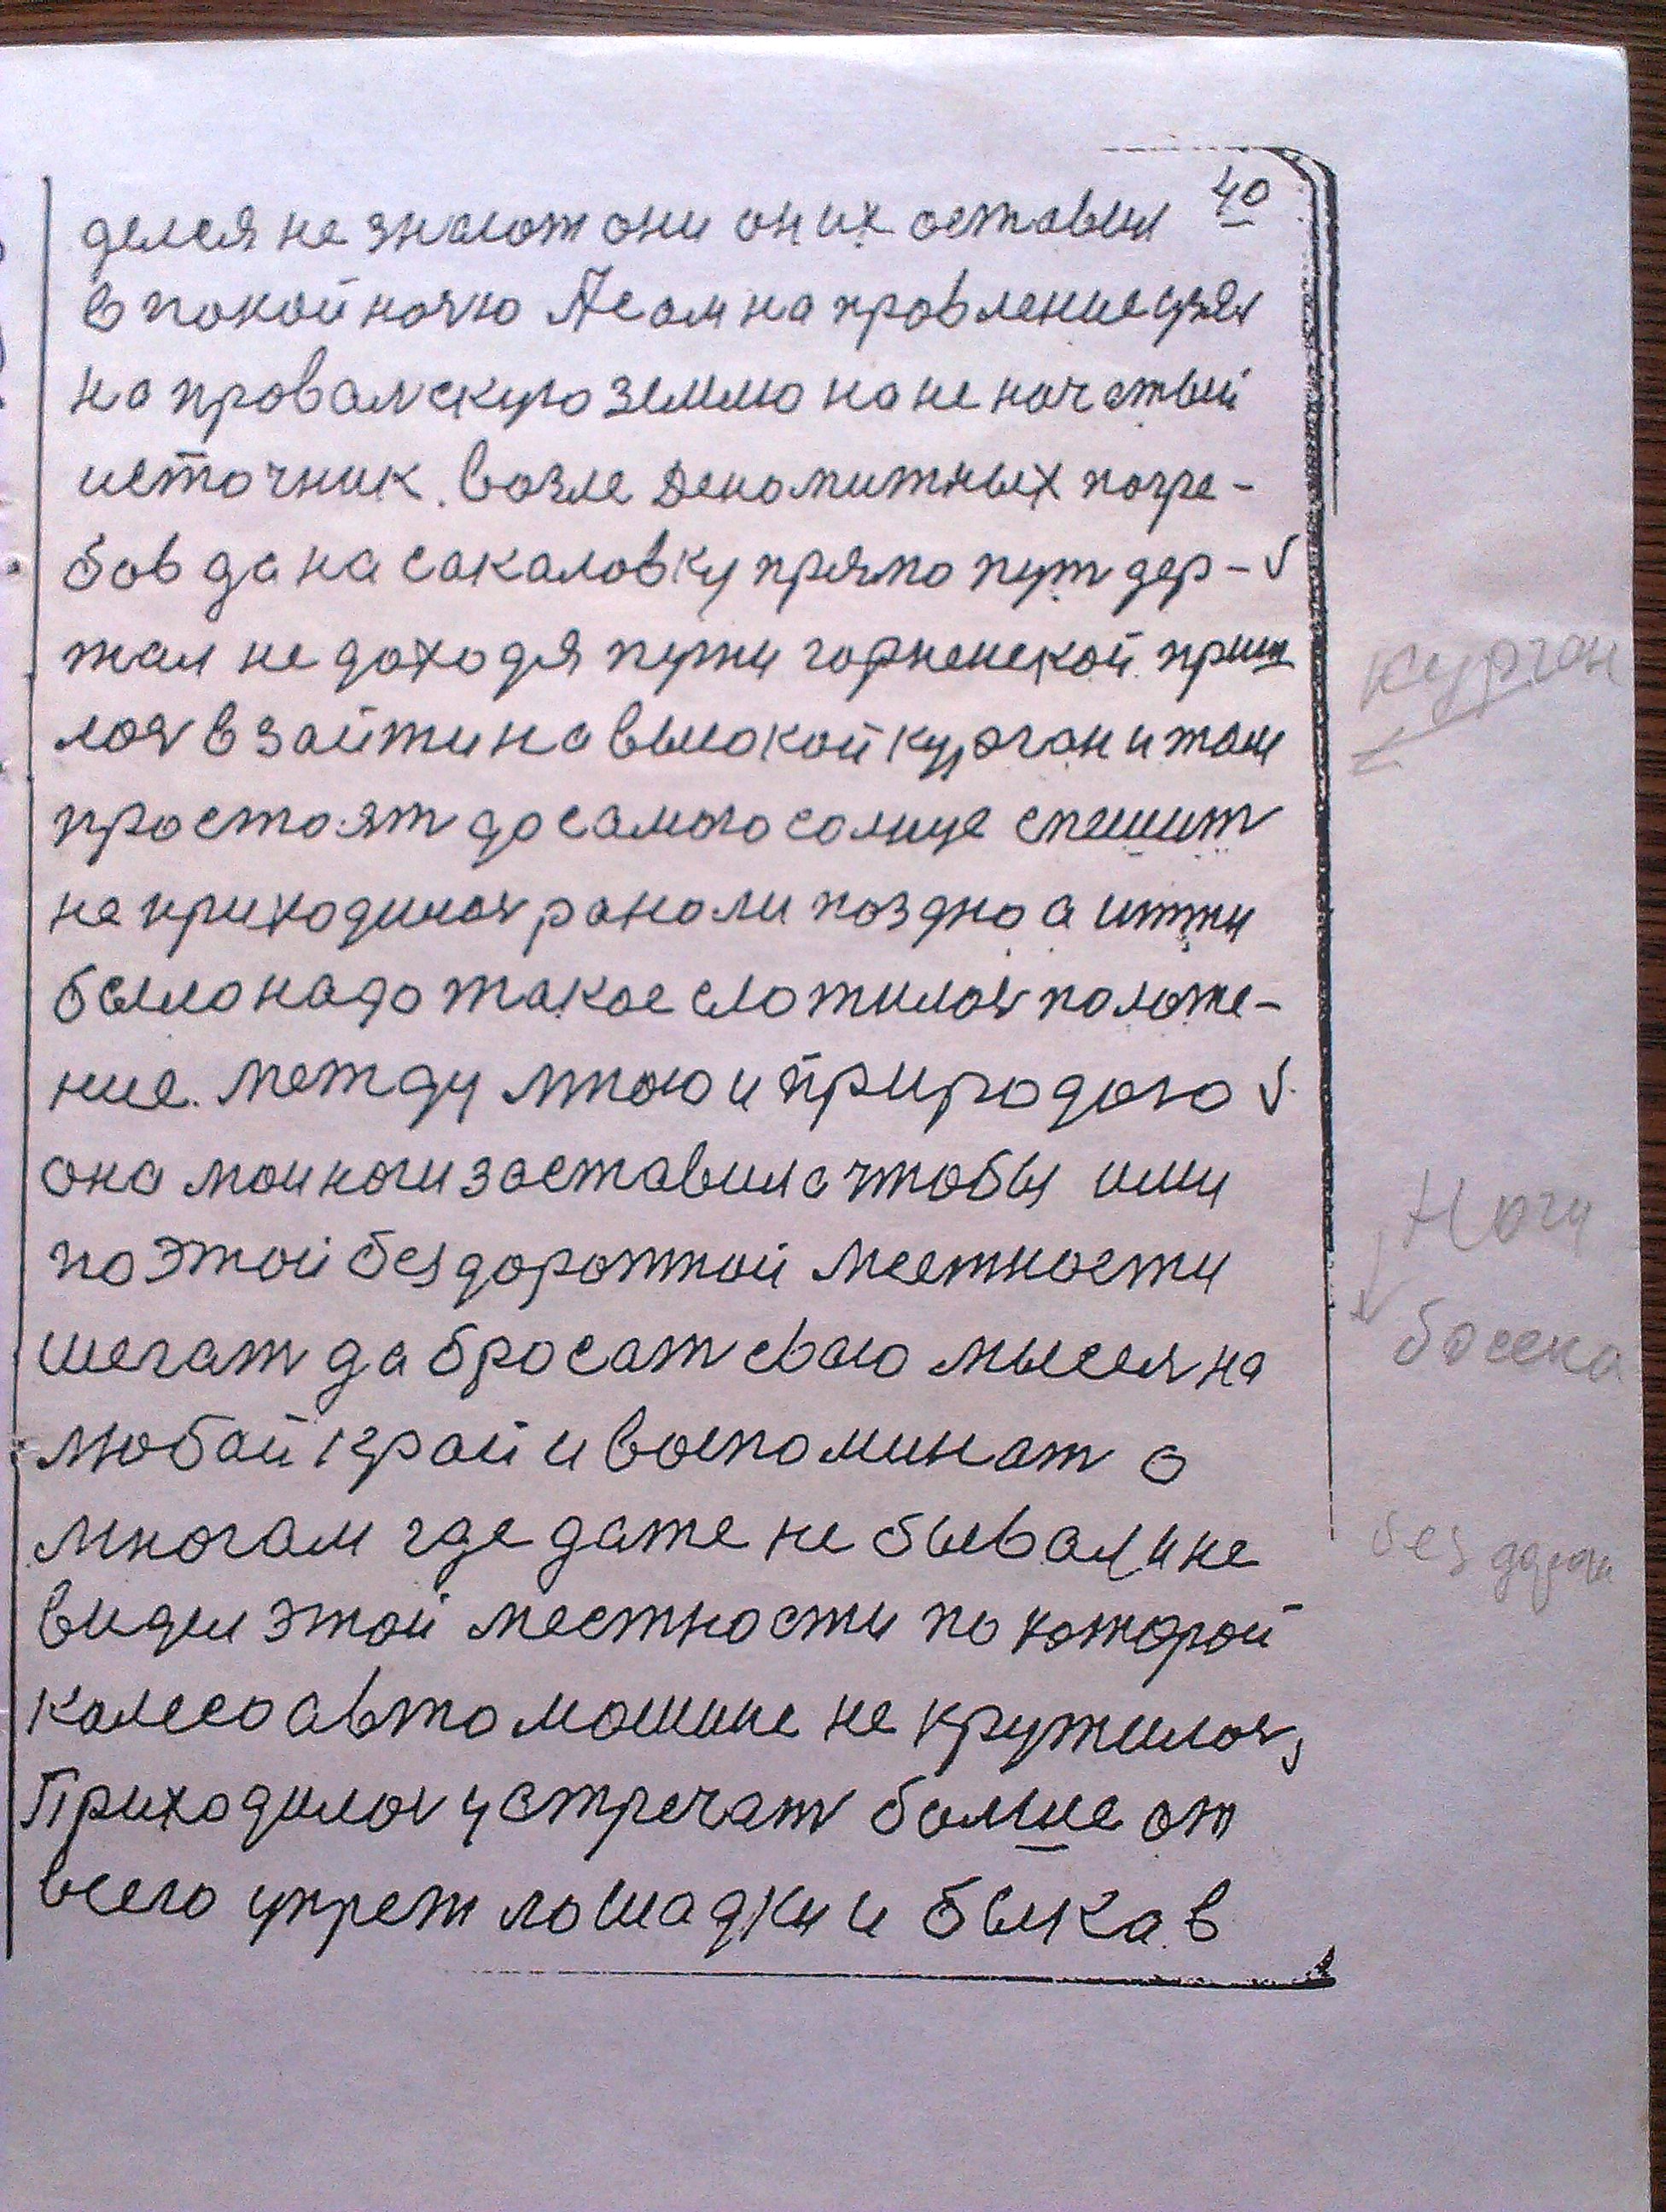 40
делся не знают они он их оставил
в покой ночю А сам на правление взял
на провалскую землю на не начатый
источник. возле Денамитных погре-
бов да на сакаловку прямо пут дер-
жал не доходя пути горненской приш
лося взайти на высокой курган и там
простоят до самого солнце спешит
не приходилося рано ли поздно а итти
было надо такое сложилося положе-
ние. между мною и природою
она мои ноги заставила чтобы ими
по этой бездорожной местности
шегат да бросат сваю мысля на
любай край и воспоминат о
многам где даже не бывал и не
видел этой местности по которой
колесо автомошине не кружилося,
Приходилося устречат болше от
всего упреж лошадки и быка в
курган
Ноги
босека
без дороги